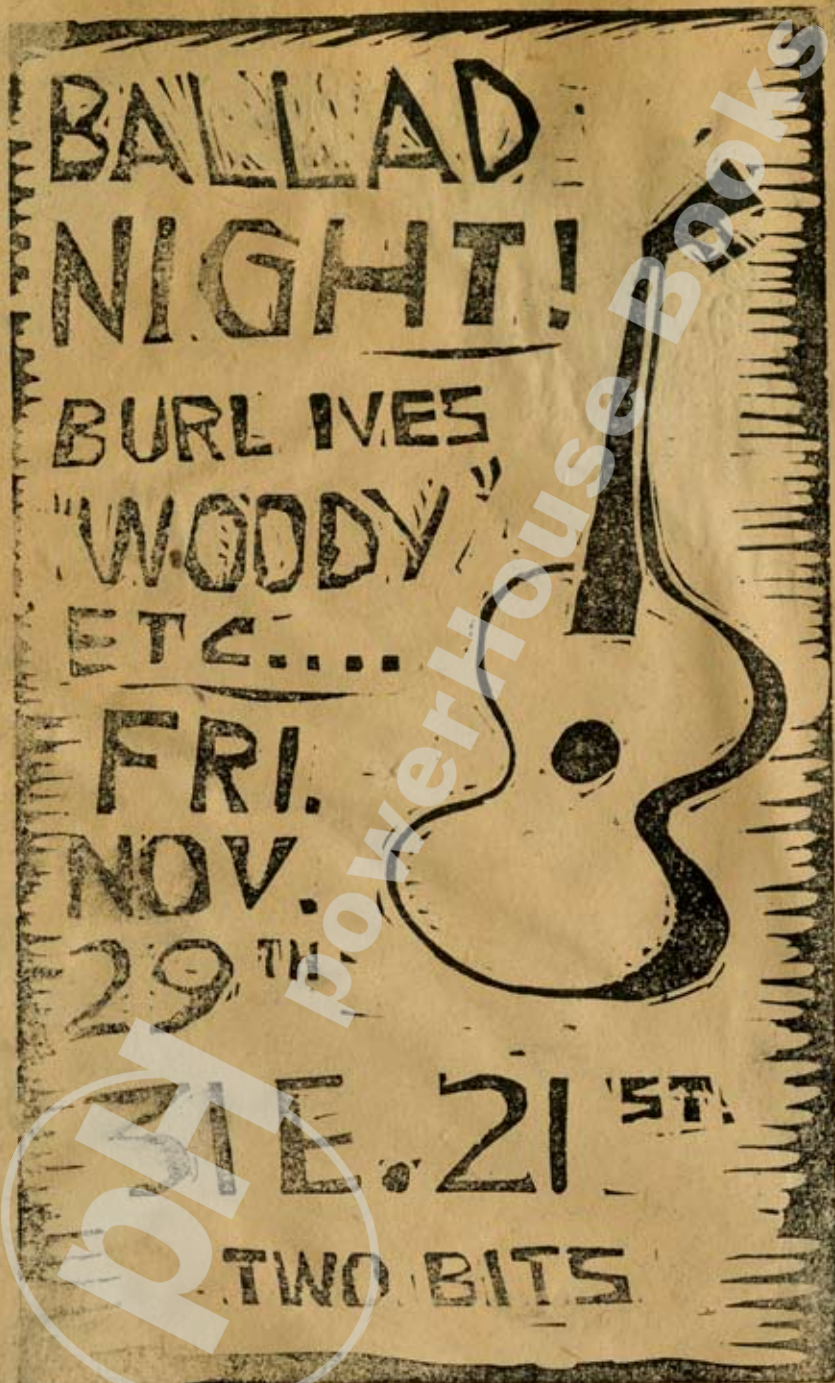 BALLAD
NIGHT!
BURL IVES
"WOODY"
ETC....
FRI.
NOV.
29TH.
31 E. 21ST.
TWO BITS
pH powerHouse Books